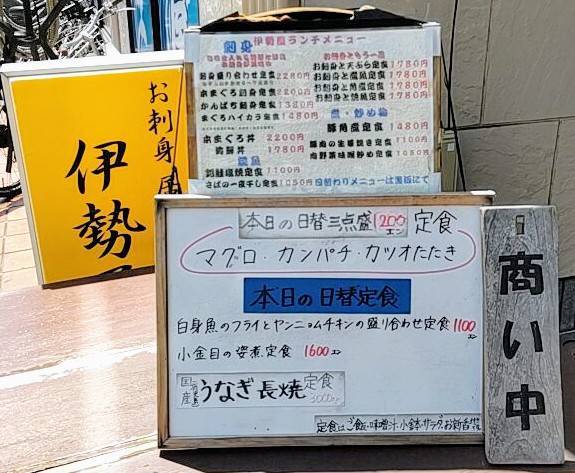 お刺身屋
伊勢
伊勢屋ランチメニュー
刺身
お刺身ともう一品
刺身盛り合わせ定食 2280円
本まぐろ刺身定食 2200円
かんぱち刺身定食 1380円
まぐろハイカラ定食 1480円
お刺身と天ぷら定食 1780円
お刺身と煮魚定食 1780円
お刺身と焼魚定食 1780円
煮・炒め物
豚角煮定食 1480円
本まぐろ丼 2200円
海鮮丼 1780円
豚肉の生姜焼き定食 1100円
焼魚
銀鮭塩焼定食 1100円
さばの一夜干し定食 1050円
日替わりメニューは黒板にて
本日の日替三点盛 1200エン 定食
マグロ・カンパチ・カツオたたき
本日の日替定食
白身魚のフライとヤンニョムチキンの盛り合わせ定食 1100エン
小金目の姿煮定食 1600エン
国産 うなぎ長焼 定食 3000エン
定食は、ご飯・味噌汁・小鉢・サラダ・お新香付
商い中